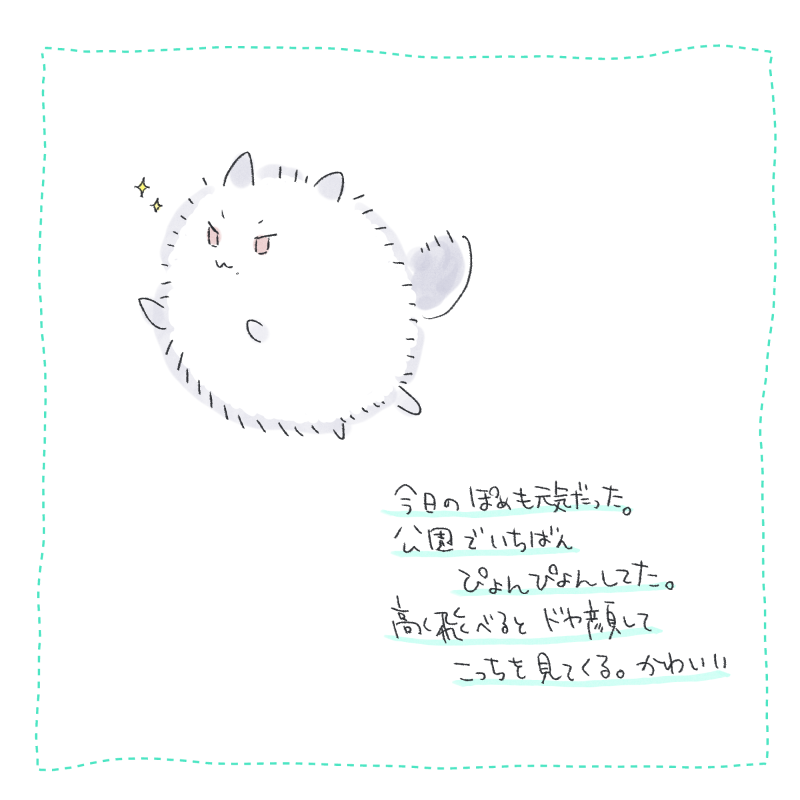 今日のぽめも元気だった。
公園でいちばん
ぴょんぴょんしてた。
高く飛べるとドヤ顔して
こっちを見てくる。かわいい